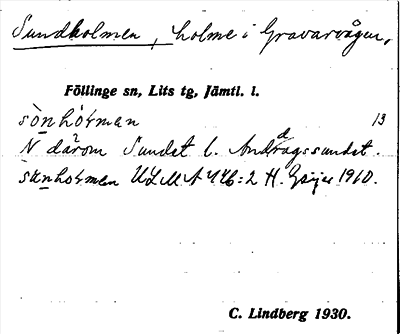 Sundholmen, holme i Gravarvågen,
Föllinge sn, Lits tg, Jämtl. l.
sònhólman 13
N därom Sundet l. Andragssundet.
sunholmen ULMA 446:2 H. Geijer 1910.
C. Lindberg 1930.